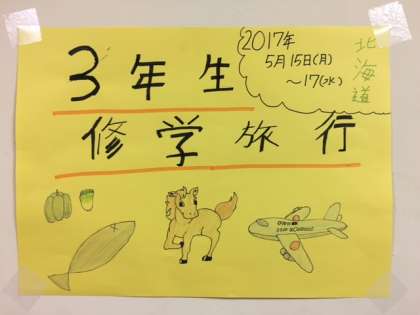 3年生
2017年
5月15日(月)
～17(水)
北海道
修学旅行